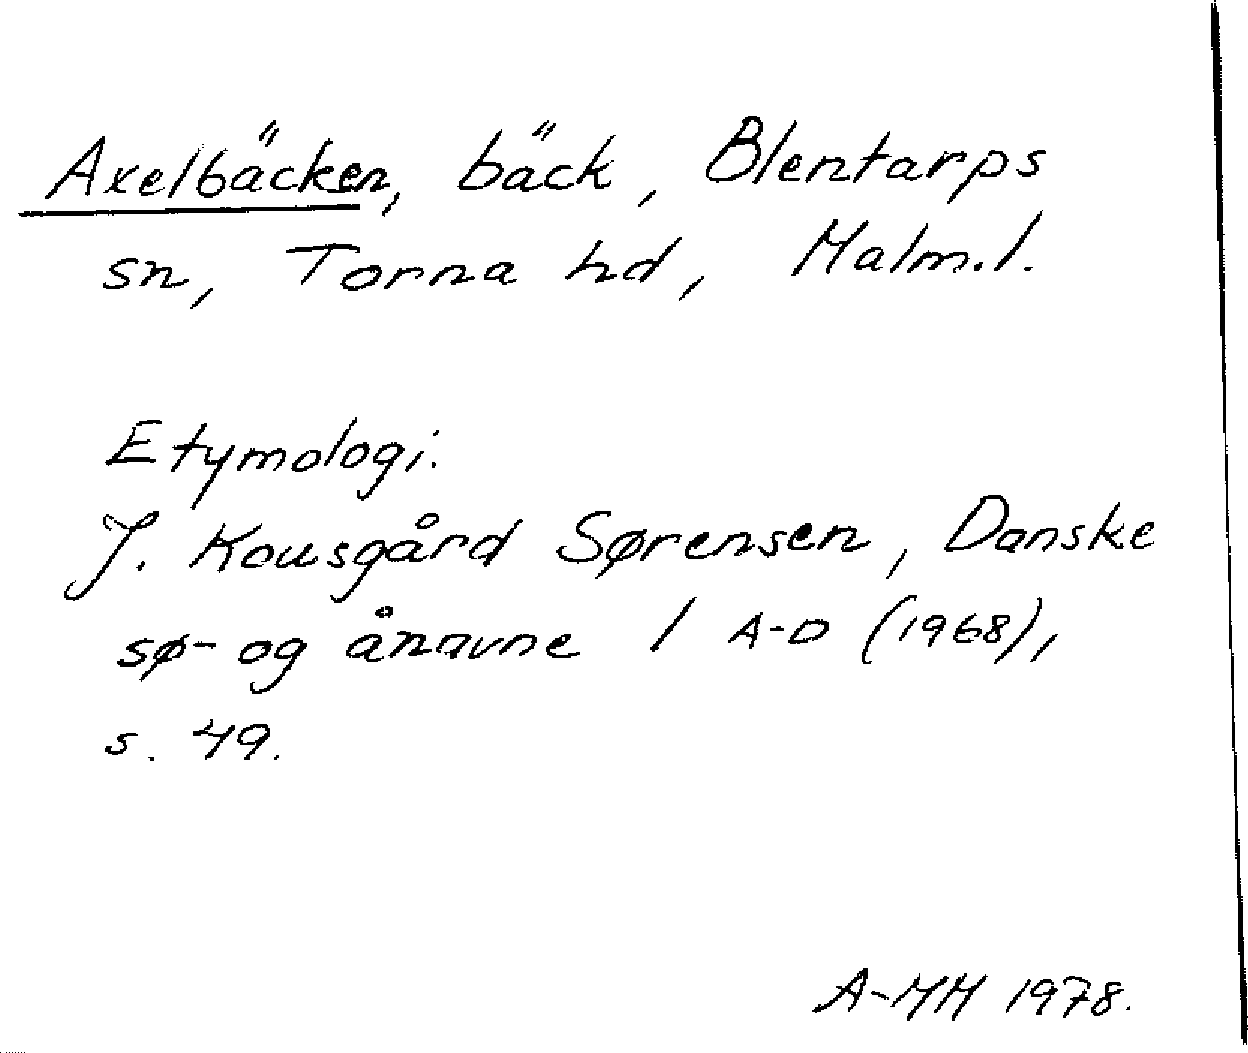 Axelbäcken, bäck, Blentarps
sn, Torna hd, Malm.l.
Etymologi:
J. Kousgård Sørensen, Danske
sø- og ånavne 1 A-D (1968),
s. 49.
A-MM 1978.